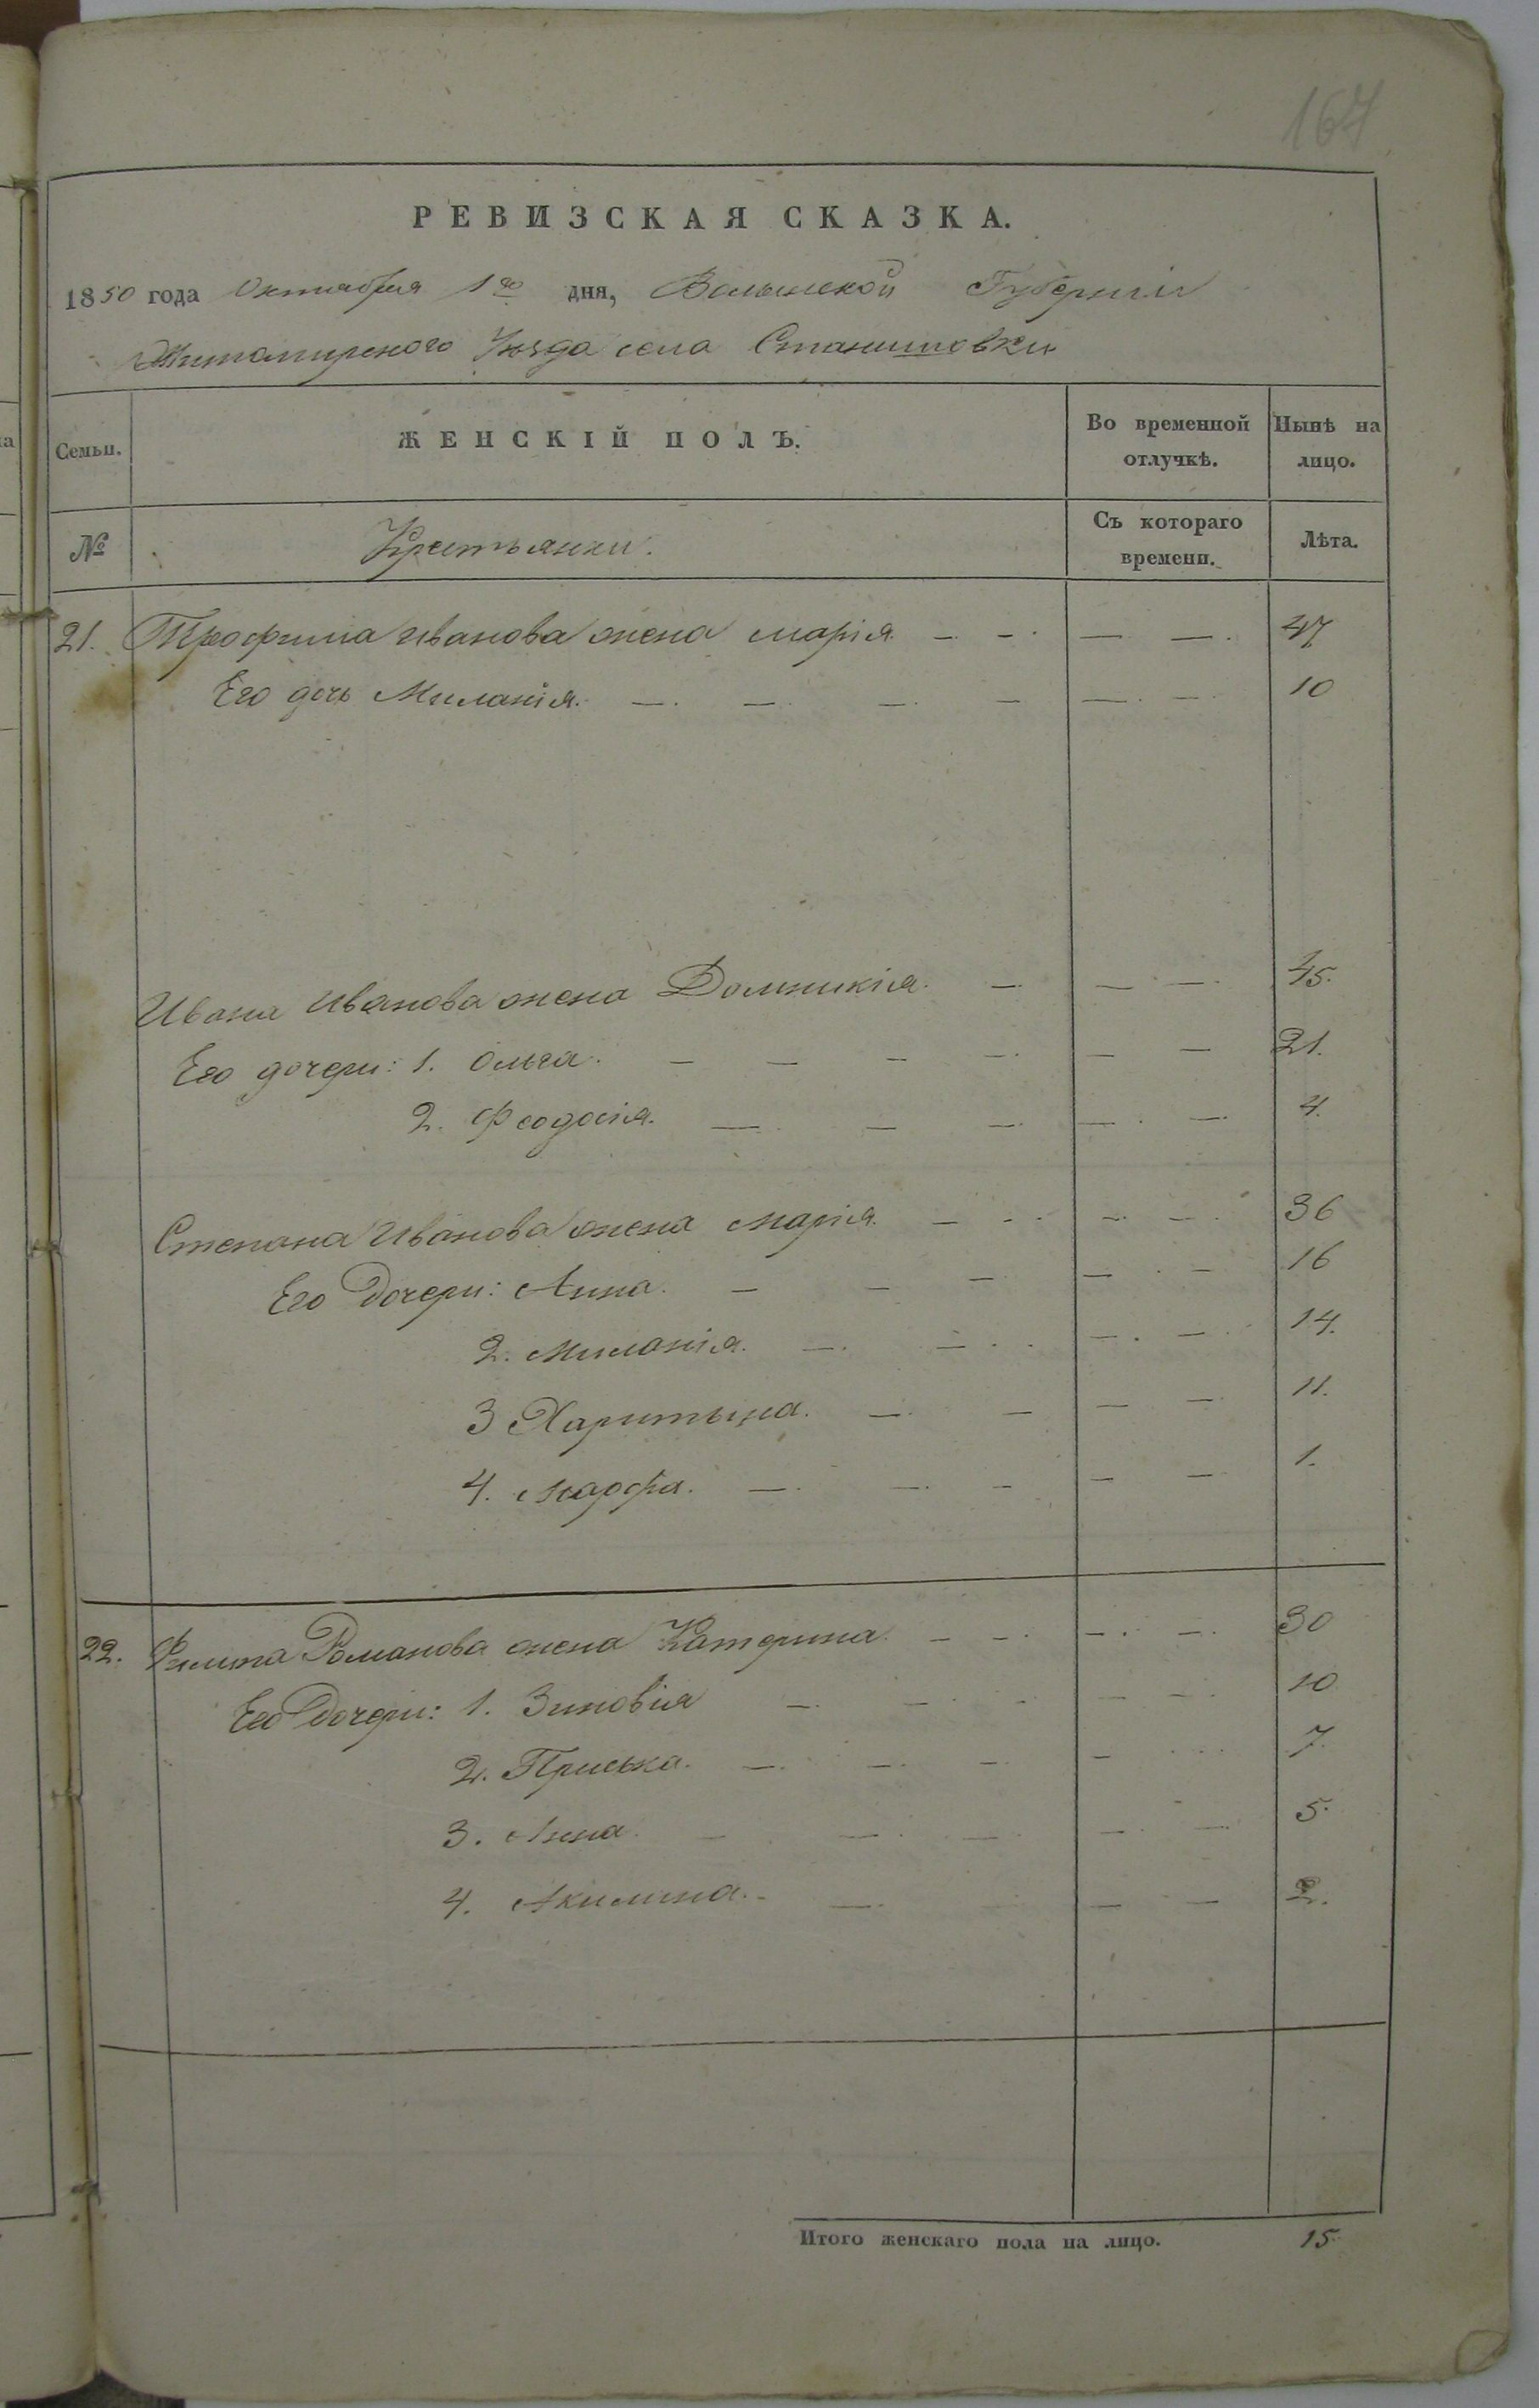 167
РЕВИЗСКАЯ СКАЗКА.
1850 года Октября 1го дня, Волынской Губерніи
Житомирского Уѣзда села Станишовки
Семьи. ЖЕНСКІЙ ПОЛЪ. Во временной отлучкѣ. Нынѣ на лицо.
№ Крестьянки. Съ котораго времени. Лѣта.
21. Трофима Иванова жена Марія. — — — — 47
Его дочь Миланія. — — — — — — 10
Ивана Иванова жена Домникія. — — — 45.
Его дочери: 1. Ольга. — — — — — — 21.
2. Феодосія. — — — — — 4.
Степана Иванова жена Марія. — — — — 36
Его Дочери: Анна. — — — — — 16
2. Миланія. — — — — 14.
3 Харитына. — — — — 11.
4. Марфа. — — — — — 1.
22. Филипа Романова жена Катерина. — — — — 30
Его Дочери: 1. Зиновія — — — — — 10
2. Приська. — — — — 7.
3. Анна. — — — — — 5.
4. Акилина. — — — 2.
Итого женскаго пола на лицо. 15.